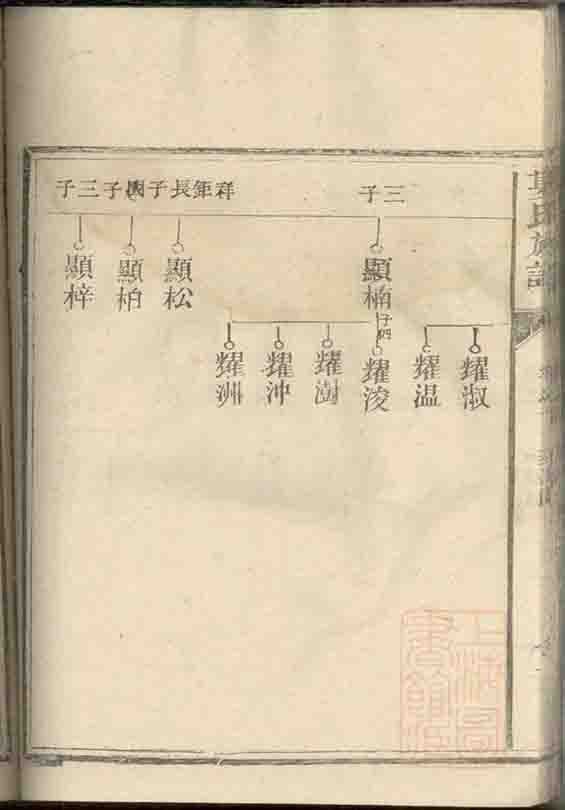 氏族譜
三子
顯楠
子四
耀淑
耀温
耀浚
耀澍
耀沖
耀洲
祥鉅長子
顯松
子
顯柏
三子
顯梓
上海圖
書館藏